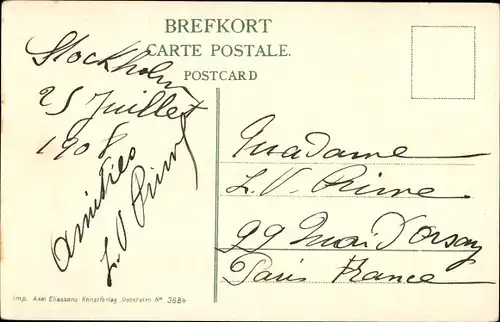 BREFKORT
CARTE POSTALE.
POSTCARD
Stockholm
25 Juillet
1908
Amitiés
L. V.
Madame
L. V.
29 Quai d'Orsay
Paris France
Imp. Axel Eliassons Konstförlag Stockholm Nº 3684